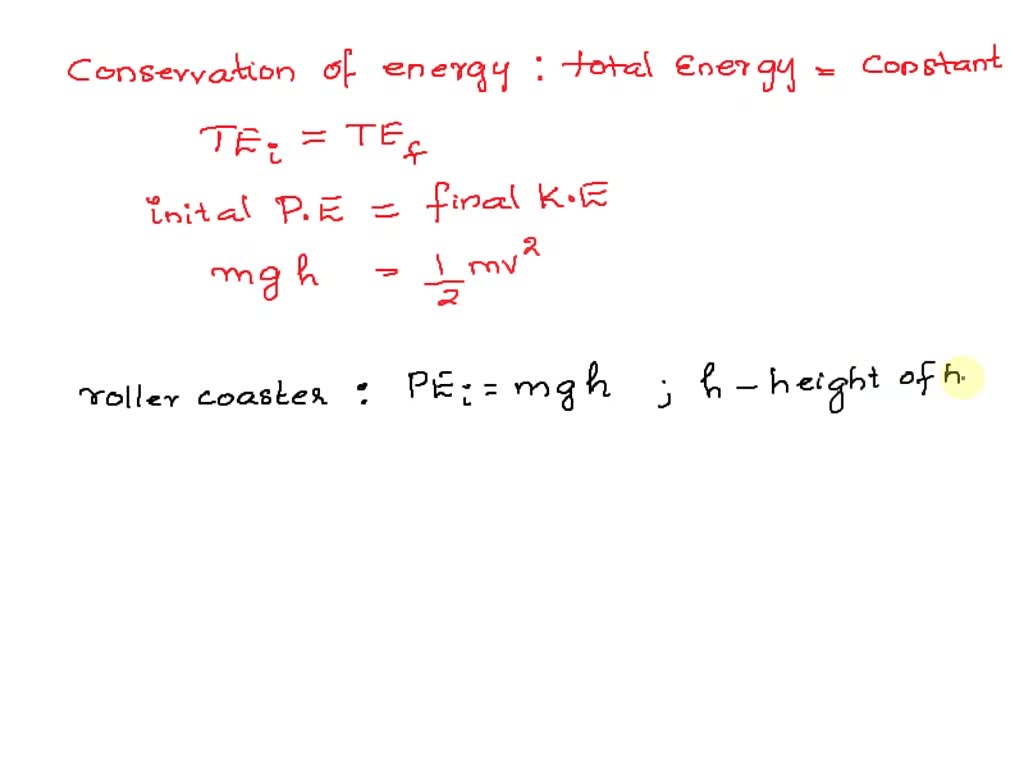 Conservation of energy : total Energy = Constant
TEi = TEf
inital P.E = final K.E
mgh = 1/2 mv²
roller coaster : PEi = mgh ; h - height of h